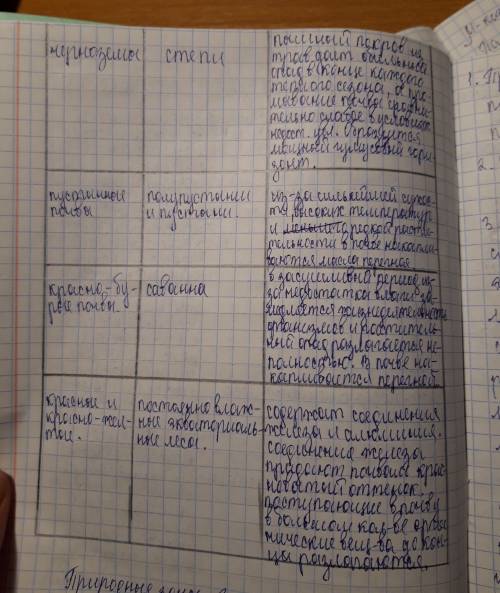 черноземы
степи
пышный покров из
трав даёт обильный
опад в конце каждого
теплого сезона, а про
мывание почвы сравни
тельно слабое в условиях
недост. увл. Образуется
мощный гумусовый гори
зонт.
пустынные
почвы
полупустыни
и пустыни.
из-за сильнейшей сухос-
ти, высоких температур
и редкой расти
тельности в почве накапли
ваются мало перегноя
красно-бу-
рые почвы.
саванна
в засушливый период из-
за недостатка влаги за-
медляется жизнедеятельность
организмов и раститель-
ный опад разлагается не-
полностью. В почве на-
капливается перегной.
красные и
красно-жел-
тые.
постоянно влаж-
ные экваториаль-
ные леса.
содержат соединения
железа и алюминия.
соединения железы
придают почвам крас-
новатый оттенок.
поступающие в почву
в большом кол-ве орга
нические вещ-ва до кон-
цы разлагаются.
Природные зоны
1.
2.
3.